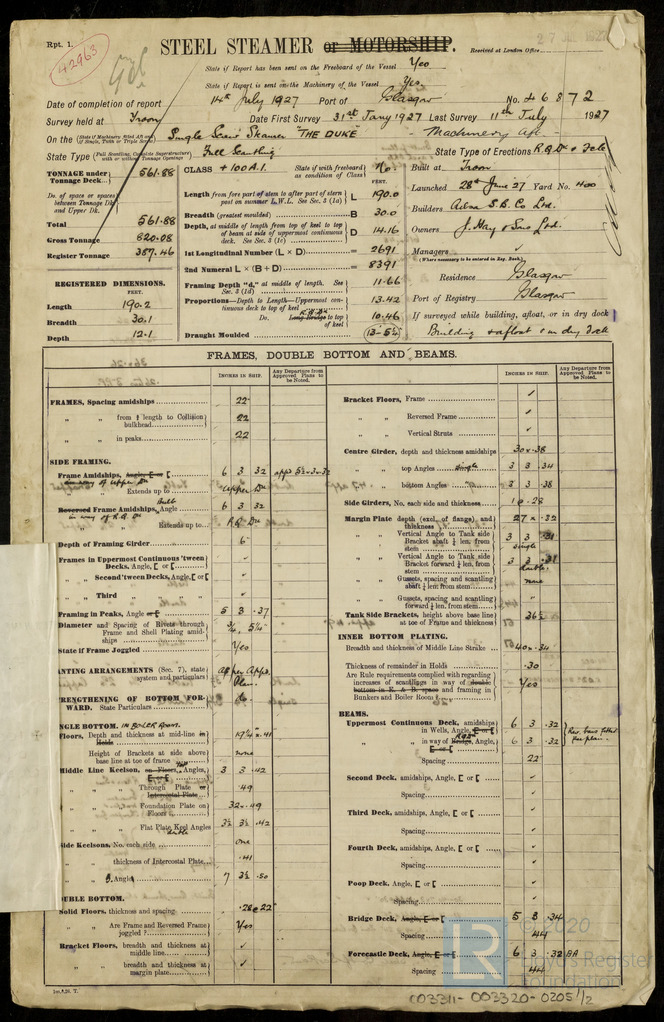 Rpt. 1.
42963
STEEL STEAMER or MOTORSHIP.
Received at London Office
State if Report has been sent on the Freeboard of the Vessel Yes
State if Report is sent on the Machinery of the Vessel Yes
Date of completion of report 14th July 1927 Port of Glasgow No. 46872
Survey held at Troon Date First Survey 31st Jany 1927 Last Survey 11th July 1927
On the (State if Machinery fitted Aft and if Single, Twin or Triple Screw) Single Screw Steamer "THE DUKE" - Machinery Aft -
State Type (Full Scantling, Complete Superstructure with or without Tonnage Openings) Full Scantling State Type of Erections R.Q.Dk & Fcle
TONNAGE under Tonnage Deck 561.88
Do. of space or spaces between Tonnage Dk. and Upper Dk.
Total 561.88
Gross Tonnage 820.08
Register Tonnage 357.46
REGISTERED DIMENSIONS.
FEET.
Length 190.2
Breadth 30.1
Depth 12.1
CLASS +100A.1. State if with freeboard as condition of Class No.
FEET.
Length from fore part of stem to after part of stern post on summer L.W.L. See Sec. 3 (1a) L 190.0
Breadth (greatest moulded) B 30.0
Depth, at middle of length from top of keel to top of beam at side of uppermost continuous deck. See Sec. 3 (1c) D 14.16
1st Longitudinal Number (L × D) = 2691
2nd Numeral L × (B + D) = 8391
Framing Depth "d," at middle of length. See Sec. 3 (1d) 11.66
Proportions—Depth to Length—Uppermost continuous deck to top of keel 13.42
Do. Long Bridge to top of keel R.Q.Dk 10.46
Draught Moulded 13-5¼
Built at Troon
Launched 28th June 27 Yard No. 400
Builders Ailsa S.B. Co. Ltd.
Owners J. Hay & Sons Ltd.
Managers
(Where necessary to be entered in Reg. Book.)
Residence Glasgow
Port of Registry Glasgow
If surveyed while building, afloat, or in dry dock
Building & afloat & in dry dock
FRAMES, DOUBLE BOTTOM AND BEAMS.
INCHES IN SHIP.
Any Departure from Approved Plans to be Noted.
FRAMES, Spacing amidships 22
" " from ⅗ length to Collision bulkhead 22
" " in peaks 22
SIDE FRAMING.
Frame Amidships, Angle, [ or [ 6 3 .32
in way of upper Dk
" " Extends up to Upper Dk
Reversed Frame Amidships, Angle 6 3 .32
in way of R.Q.Dk
" " Extends up to R.Q.Dk
Depth of Framing Girder 6
Frames in Uppermost Continuous 'tween Decks, Angle, [ or [ ✓
" Second 'tween Decks, Angle, [ or [ ✓
" Third " " " ✓
Framing in Peaks, Angle or [ 5 3 .37
Diameter and Spacing of Rivets through Frame and Shell Plating amidships ¾ 5¼
State if Frame Joggled Yes
ANTING ARRANGEMENTS (Sec. 7), state system and particulars as per Appd. Plan
RENGTHENING OF BOTTOM FORWARD. State Particulars do
NGLE BOTTOM. IN BOILER ROOM.
Floors, Depth and thickness at mid-line in Holds 19¼ × .41
Height of Brackets at side above base line at toe of frame none
Middle Line Keelson, on Floors, Angles, [ or [ 3 3 .42
" " Through Plate or Intercostal Plate .49
" " Foundation Plate on Floors 32 × .49
" " Flat Plate Keel Angles 3½ 3½ .42
double
Side Keelsons, No. each side one
" " thickness of Intercostal Plate .41
" " Angle 7 3½ .50
OUBLE BOTTOM.
Solid Floors, thickness and spacing .28 @ 22"
" " Are Frame and Reversed Frame joggled? Yes
Bracket Floors, breadth and thickness at middle line ✓
" " breadth and thickness at margin plate ✓
Bracket Floors, Frame ✓
" " Reversed Frame ✓
" " Vertical Struts ✓
Centre Girder, depth and thickness amidships 30 × .38
" " top Angles single 3 3 .34
" " bottom Angles 3 3 .38
Side Girders, No. each side and thickness 1 @ .28
Margin Plate depth (excl. of flange) and thickness 27 × .32
" " Vertical Angle to Tank side Bracket abaft ¼ len. from stem 3 3 .31 single
" " Vertical Angle to Tank side Bracket forward ¼ len. from stem 3 3 .31 double
" " Gussets, spacing and scantling abaft ¼ len. from stem none
" " Gussets, spacing and scantling forward ¼ len. from stem ✓
Tank Side Brackets, height above base line at toe of Frame and thickness 36½
INNER BOTTOM PLATING.
Breadth and thickness of Middle Line Strake 40 × .34
Thickness of remainder in Holds .30
Are Rule requirements complied with regarding increases of scantlings in way of double bottom in E. & B. space and framing in Bunkers and Boiler Room? Yes
BEAMS.
Uppermost Continuous Deck, amidships in Wells, Angle, [ or [ 6 3 .32
" " in way of Bridge, Angle, [ or [ R.Q.D. 6 3 .32
Spacing 22
Second Deck, amidships, Angle, [ or [ ✓
Spacing ✓
Third Deck, amidships, Angle, [ or [ ✓
Spacing ✓
Fourth Deck, amidships, Angle, [ or [ ✓
Spacing ✓
Poop Deck, Angle, [ or [ ✓
Spacing ✓
Bridge Deck, Angle, [ or [ 5 3 .34
Spacing 44
Forecastle Deck, Angle, [ or [ 6 3 .32 BA
Spacing 44
LR
©2020
Lloyd's Register
Foundation
003311-003320-0205 1/2